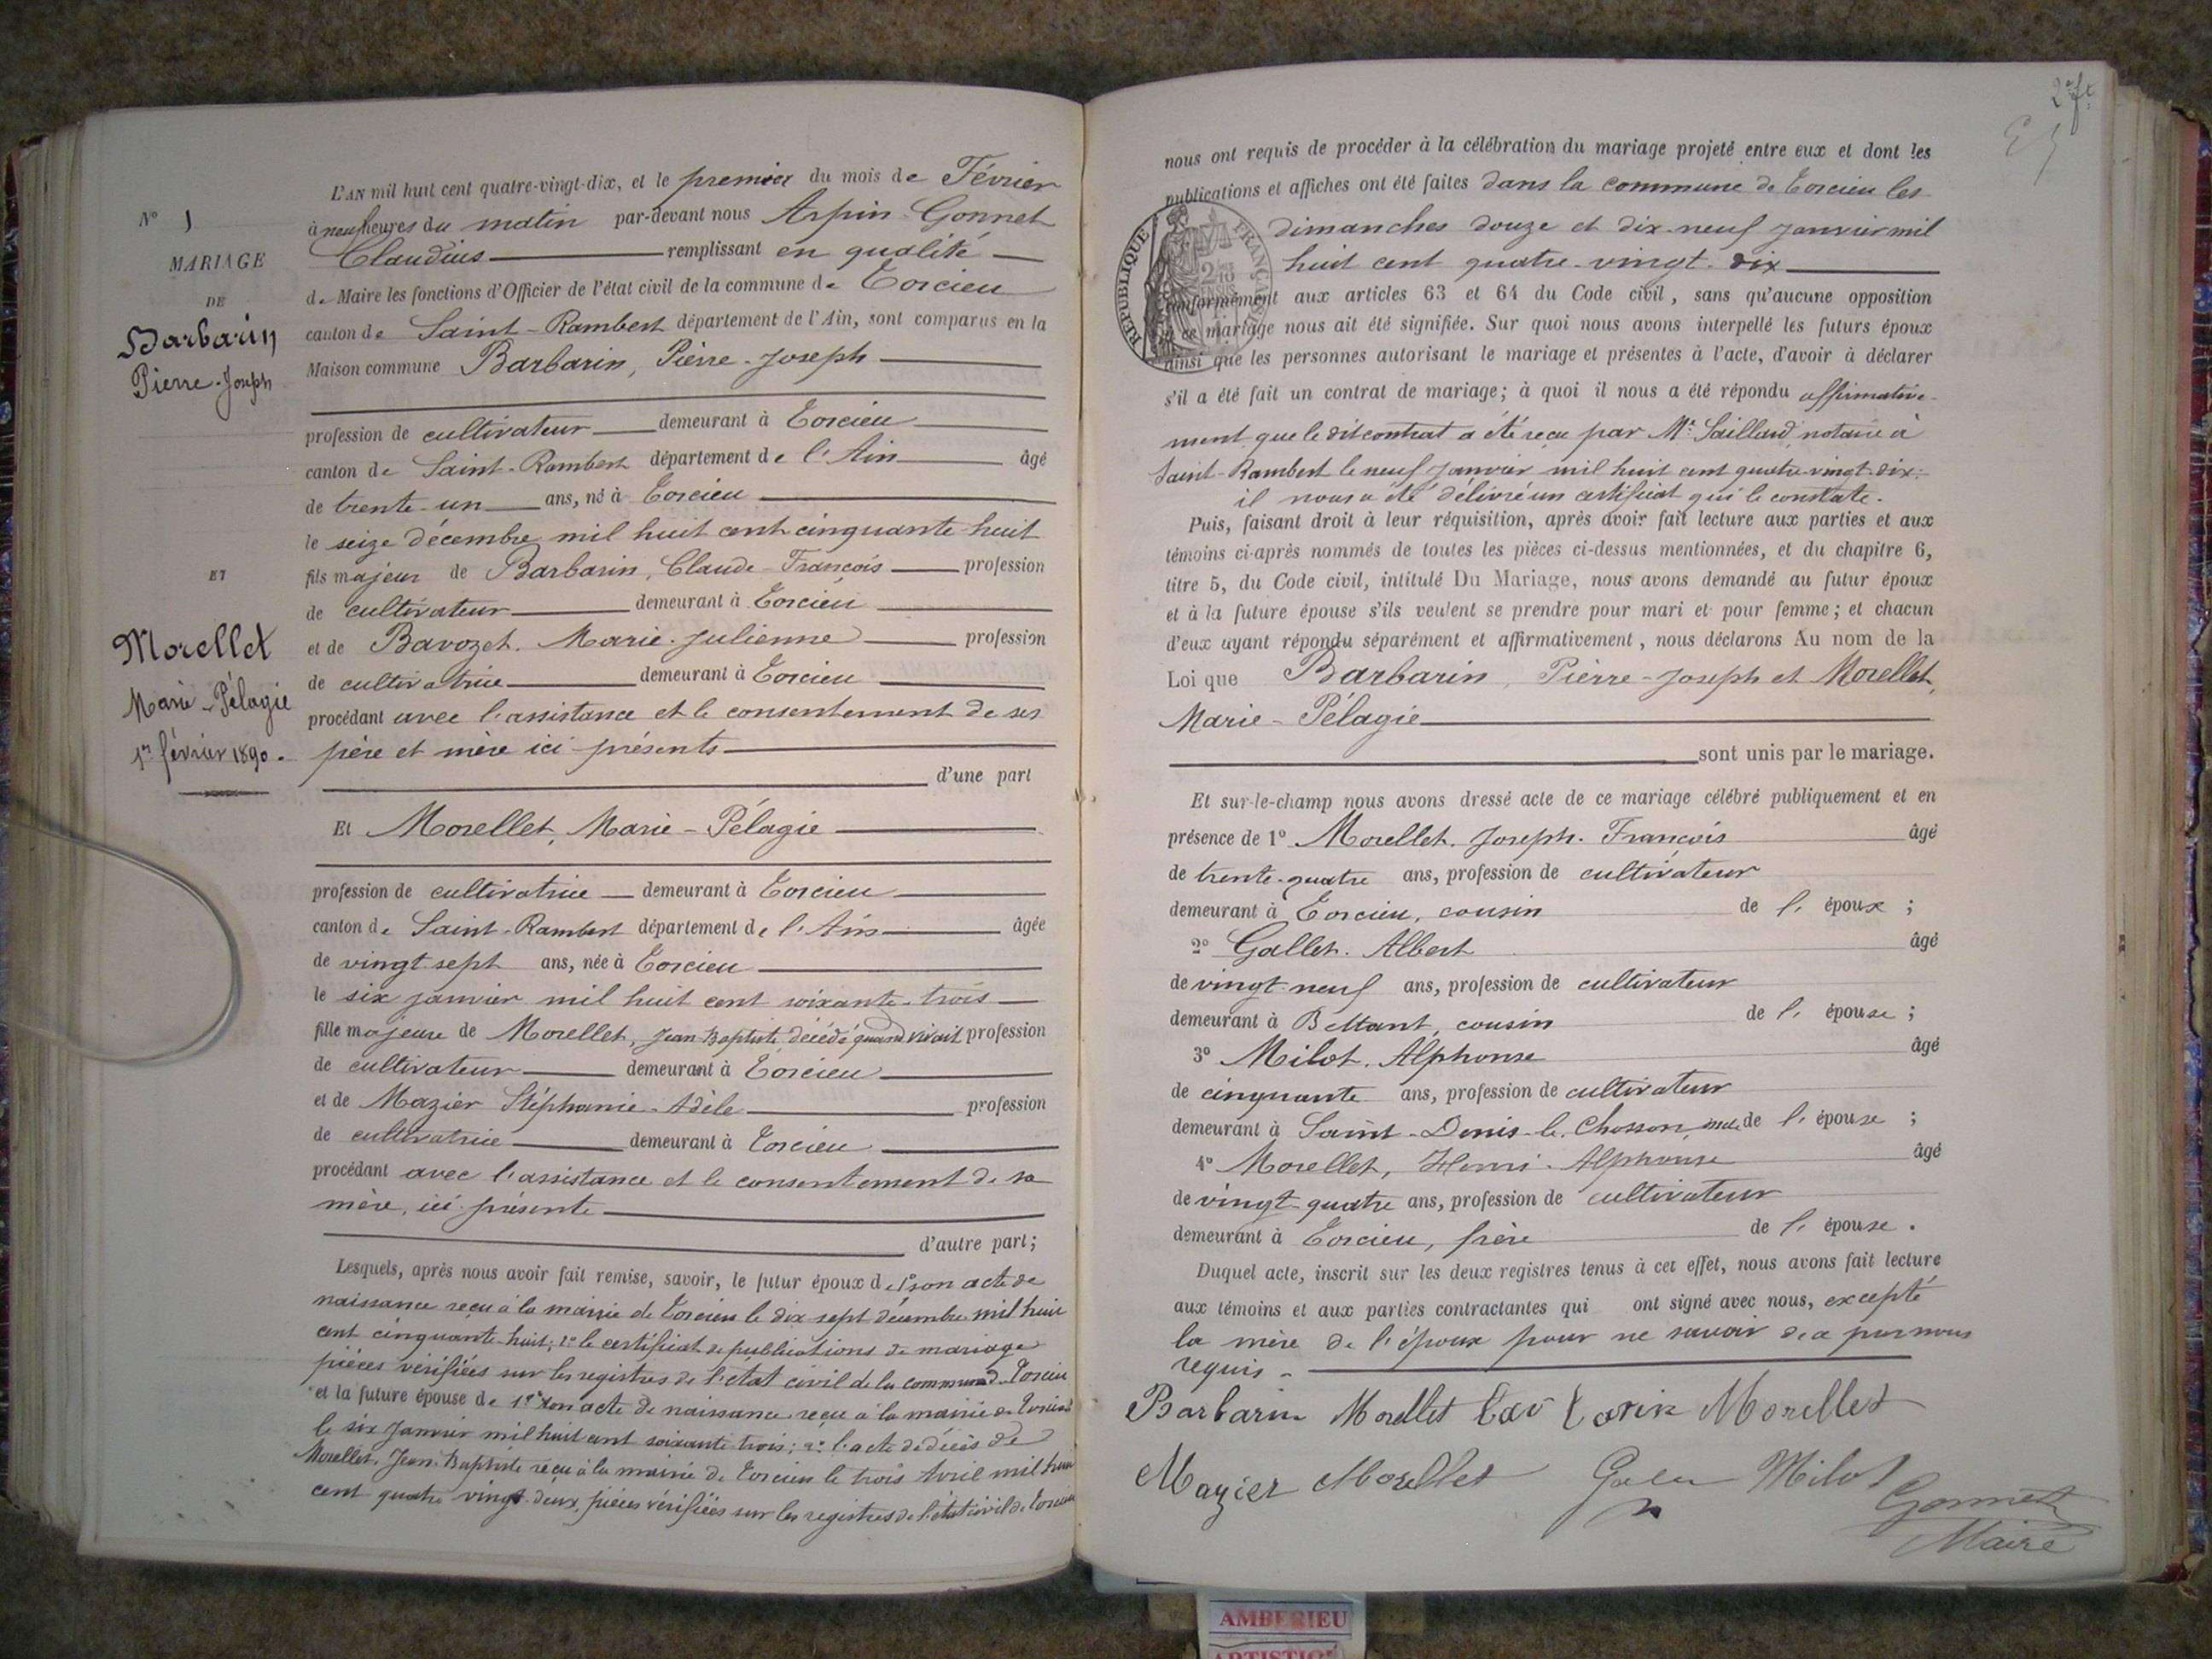 N° 1
MARIAGE
DE
Barbarin
Pierre-Joseph
ET
Morellet
Marie-Pélagie
1er février 1890.
L'AN mil huit cent quatre-vingt-dix, et le premier du mois de Février
à neuf heures du matin par-devant nous Arpin-Gonnet
Claudius remplissant en qualité
de Maire les fonctions d'Officier de l'état civil de la commune de Torcieu
canton de Saint-Rambert département de l'Ain, sont comparus en la
Maison commune Barbarin, Pierre-Joseph
profession de cultivateur demeurant à Torcieu
canton de Saint-Rambert département de l'Ain âgé
de trente-un ans, né à Torcieu
le seize décembre mil huit cent cinquante-huit
fils majeur de Barbarin, Claude-François profession
de cultivateur demeurant à Torcieu
et de Bavozet, Marie-Julienne profession
de cultivatrice demeurant à Torcieu
procédant avec l'assistance et le consentement de ses
père et mère ici présents
d'une part
Et Morellet, Marie-Pélagie
profession de cultivatrice demeurant à Torcieu
canton de Saint-Rambert département de l'Ain âgée
de vingt-sept ans, née à Torcieu
le six janvier mil huit cent soixante-trois
fille majeure de Morellet, Jean-Baptiste, décédé quand vivait profession
de cultivateur demeurant à Torcieu
et de Mazier Stéphanie-Adèle profession
de cultivatrice demeurant à Torcieu
procédant avec l'assistance et le consentement de sa
mère, ici présente
d'autre part;
Lesquels, après nous avoir fait remise, savoir, le futur époux de 1° son acte de
naissance reçu à la mairie de Torcieu le dix-sept décembre mil huit
cent cinquante-huit; 2° le certificat de publications de mariage
pièces vérifiées sur les registres de l'état civil de la commune de Torcieu
et la future épouse de 1° son acte de naissance reçu à la mairie de Torcieu
le six Janvier mil huit cent soixante trois; 2° l'acte de décès de
Morellet, Jean-Baptiste reçu à la mairie de Torcieu le trois Avril mil huit
cent quatre vingt-deux, pièces vérifiées sur les registres de l'état civil de Torcieu
2e ft
nous ont requis de procéder à la célébration du mariage projeté entre eux et dont les
publications et affiches ont été faites dans la commune de Torcieu les
dimanches douze et dix-neuf janvier mil
huit cent quatre-vingt-dix
RÉPUBLIQUE FRANÇAISE
conformément aux articles 63 et 64 du Code civil, sans qu'aucune opposition
à ce mariage nous ait été signifiée. Sur quoi nous avons interpellé les futurs époux
ainsi que les personnes autorisant le mariage et présentes à l'acte, d'avoir à déclarer
s'il a été fait un contrat de mariage; à quoi il nous a été répondu affirmative-
ment que le dit contrat a été reçu par Me Saillard, notaire à
Saint-Rambert le neuf Janvier mil huit cent quatre-vingt-dix:
il nous a été délivré un certificat qui le constate.
Puis, faisant droit à leur réquisition, après avoir fait lecture aux parties et aux
témoins ci-après nommés de toutes les pièces ci-dessus mentionnées, et du chapitre 6,
titre 5, du Code civil, intitulé Du Mariage, nous avons demandé au futur époux
et à la future épouse s'ils veulent se prendre pour mari et pour femme; et chacun
d'eux ayant répondu séparément et affirmativement, nous déclarons Au nom de la
Loi que Barbarin, Pierre-Joseph et Morellet,
Marie-Pélagie
sont unis par le mariage.
Et sur-le-champ nous avons dressé acte de ce mariage célébré publiquement et en
présence de 1° Morellet, Joseph-François âgé
de trente-quatre ans, profession de cultivateur
demeurant à Torcieu, cousin de l'époux;
2° Gallet, Albert âgé
de vingt-neuf ans, profession de cultivateur
demeurant à Bettant, cousin de l'épouse;
3° Milot, Alphonse âgé
de cinquante ans, profession de cultivateur
demeurant à Saint-Denis-le-Chosson, oncle de l'épouse;
4° Morellet, Henri-Alphonse âgé
de vingt-quatre ans, profession de cultivateur
demeurant à Torcieu, frère de l'épouse.
Duquel acte, inscrit sur les deux registres tenus à cet effet, nous avons fait lecture
aux témoins et aux parties contractantes qui ont signé avec nous, excepté
la mère de l'époux pour ne savoir de ce par nous
requis.
Barbarin Morellet Morellet
Mazier Morellet Milot
Gonnet
Maire
AMBERIEU